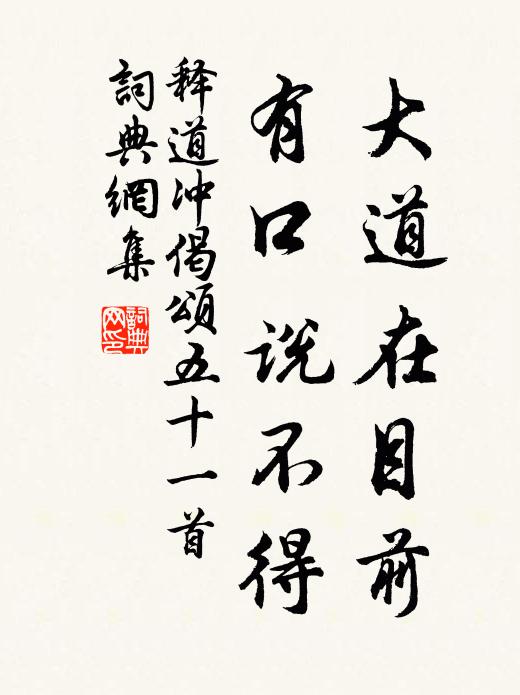 大道在目前
有口说不得
释道冲偈颂五十一首
詞典網集
詞典网印